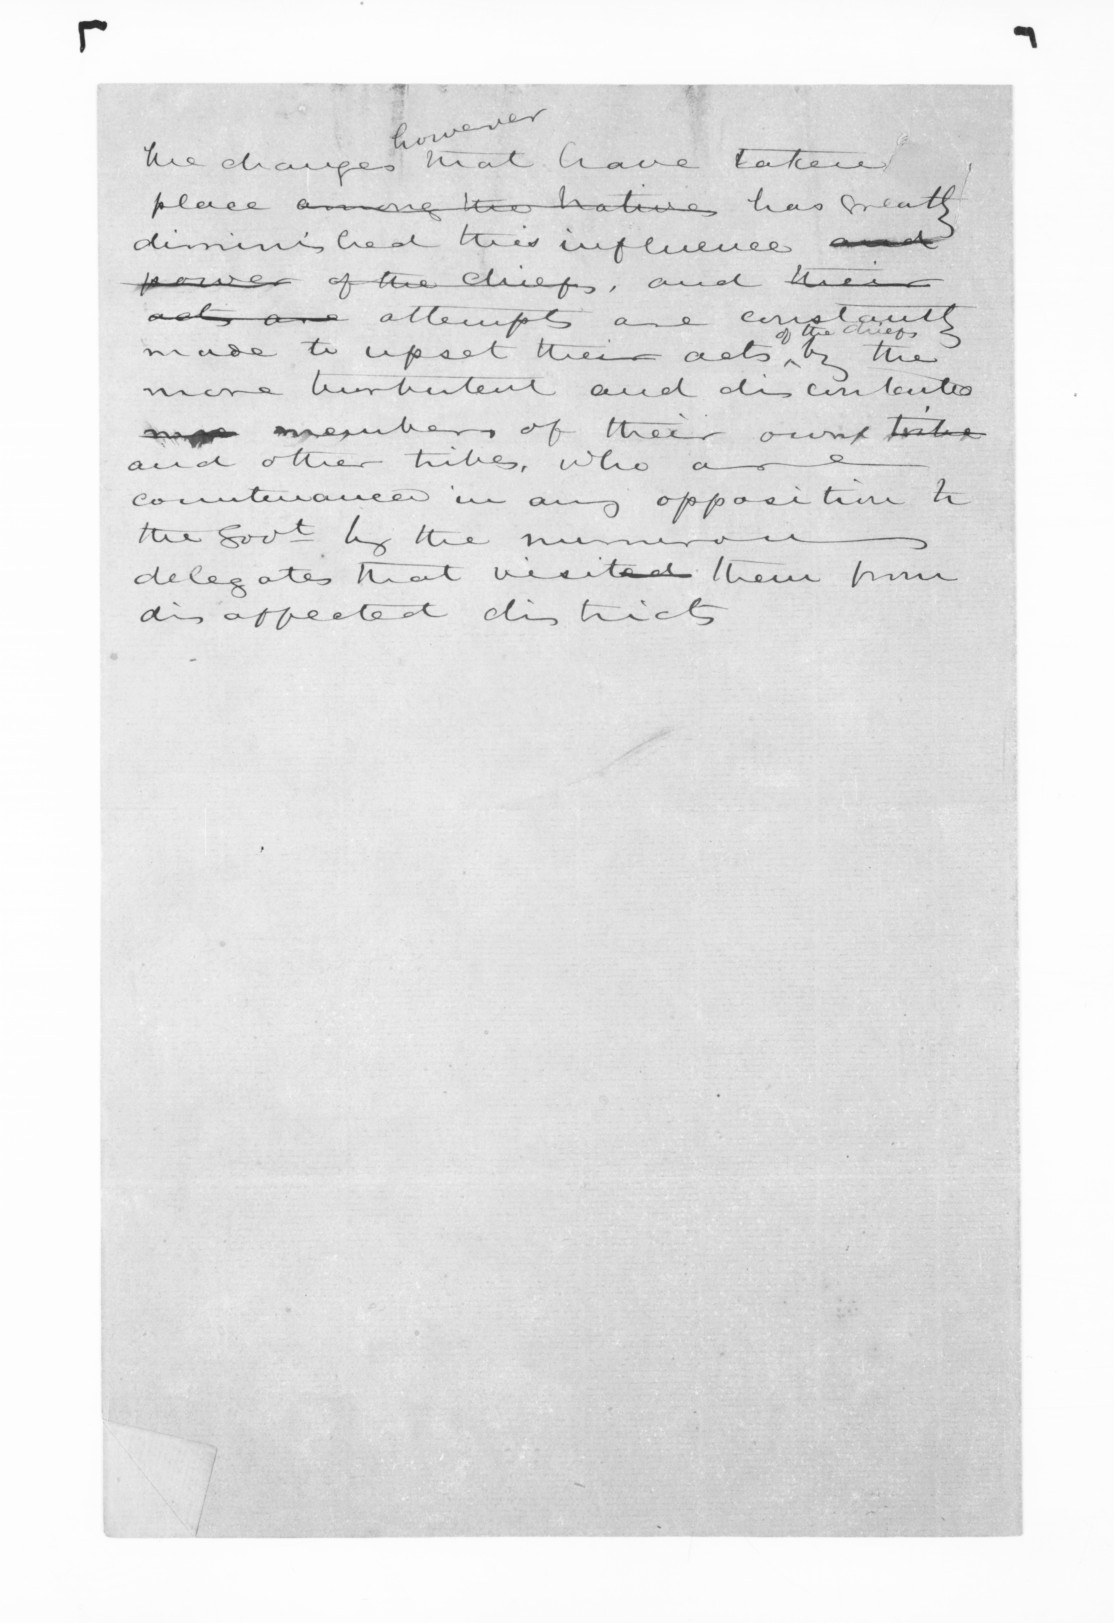 however
the changes that have taken
place among the Natives has greatly
diminished this influence and
power of the chiefs, and their
acts are attempts are constantly
of the chiefs
made to upset their acts by the
more turbulent and discontented
members of their own tribe
and other tribes, who are
countenanced in any opposition to
the Govt by the numerous
delegates that visited them from
disaffected districts